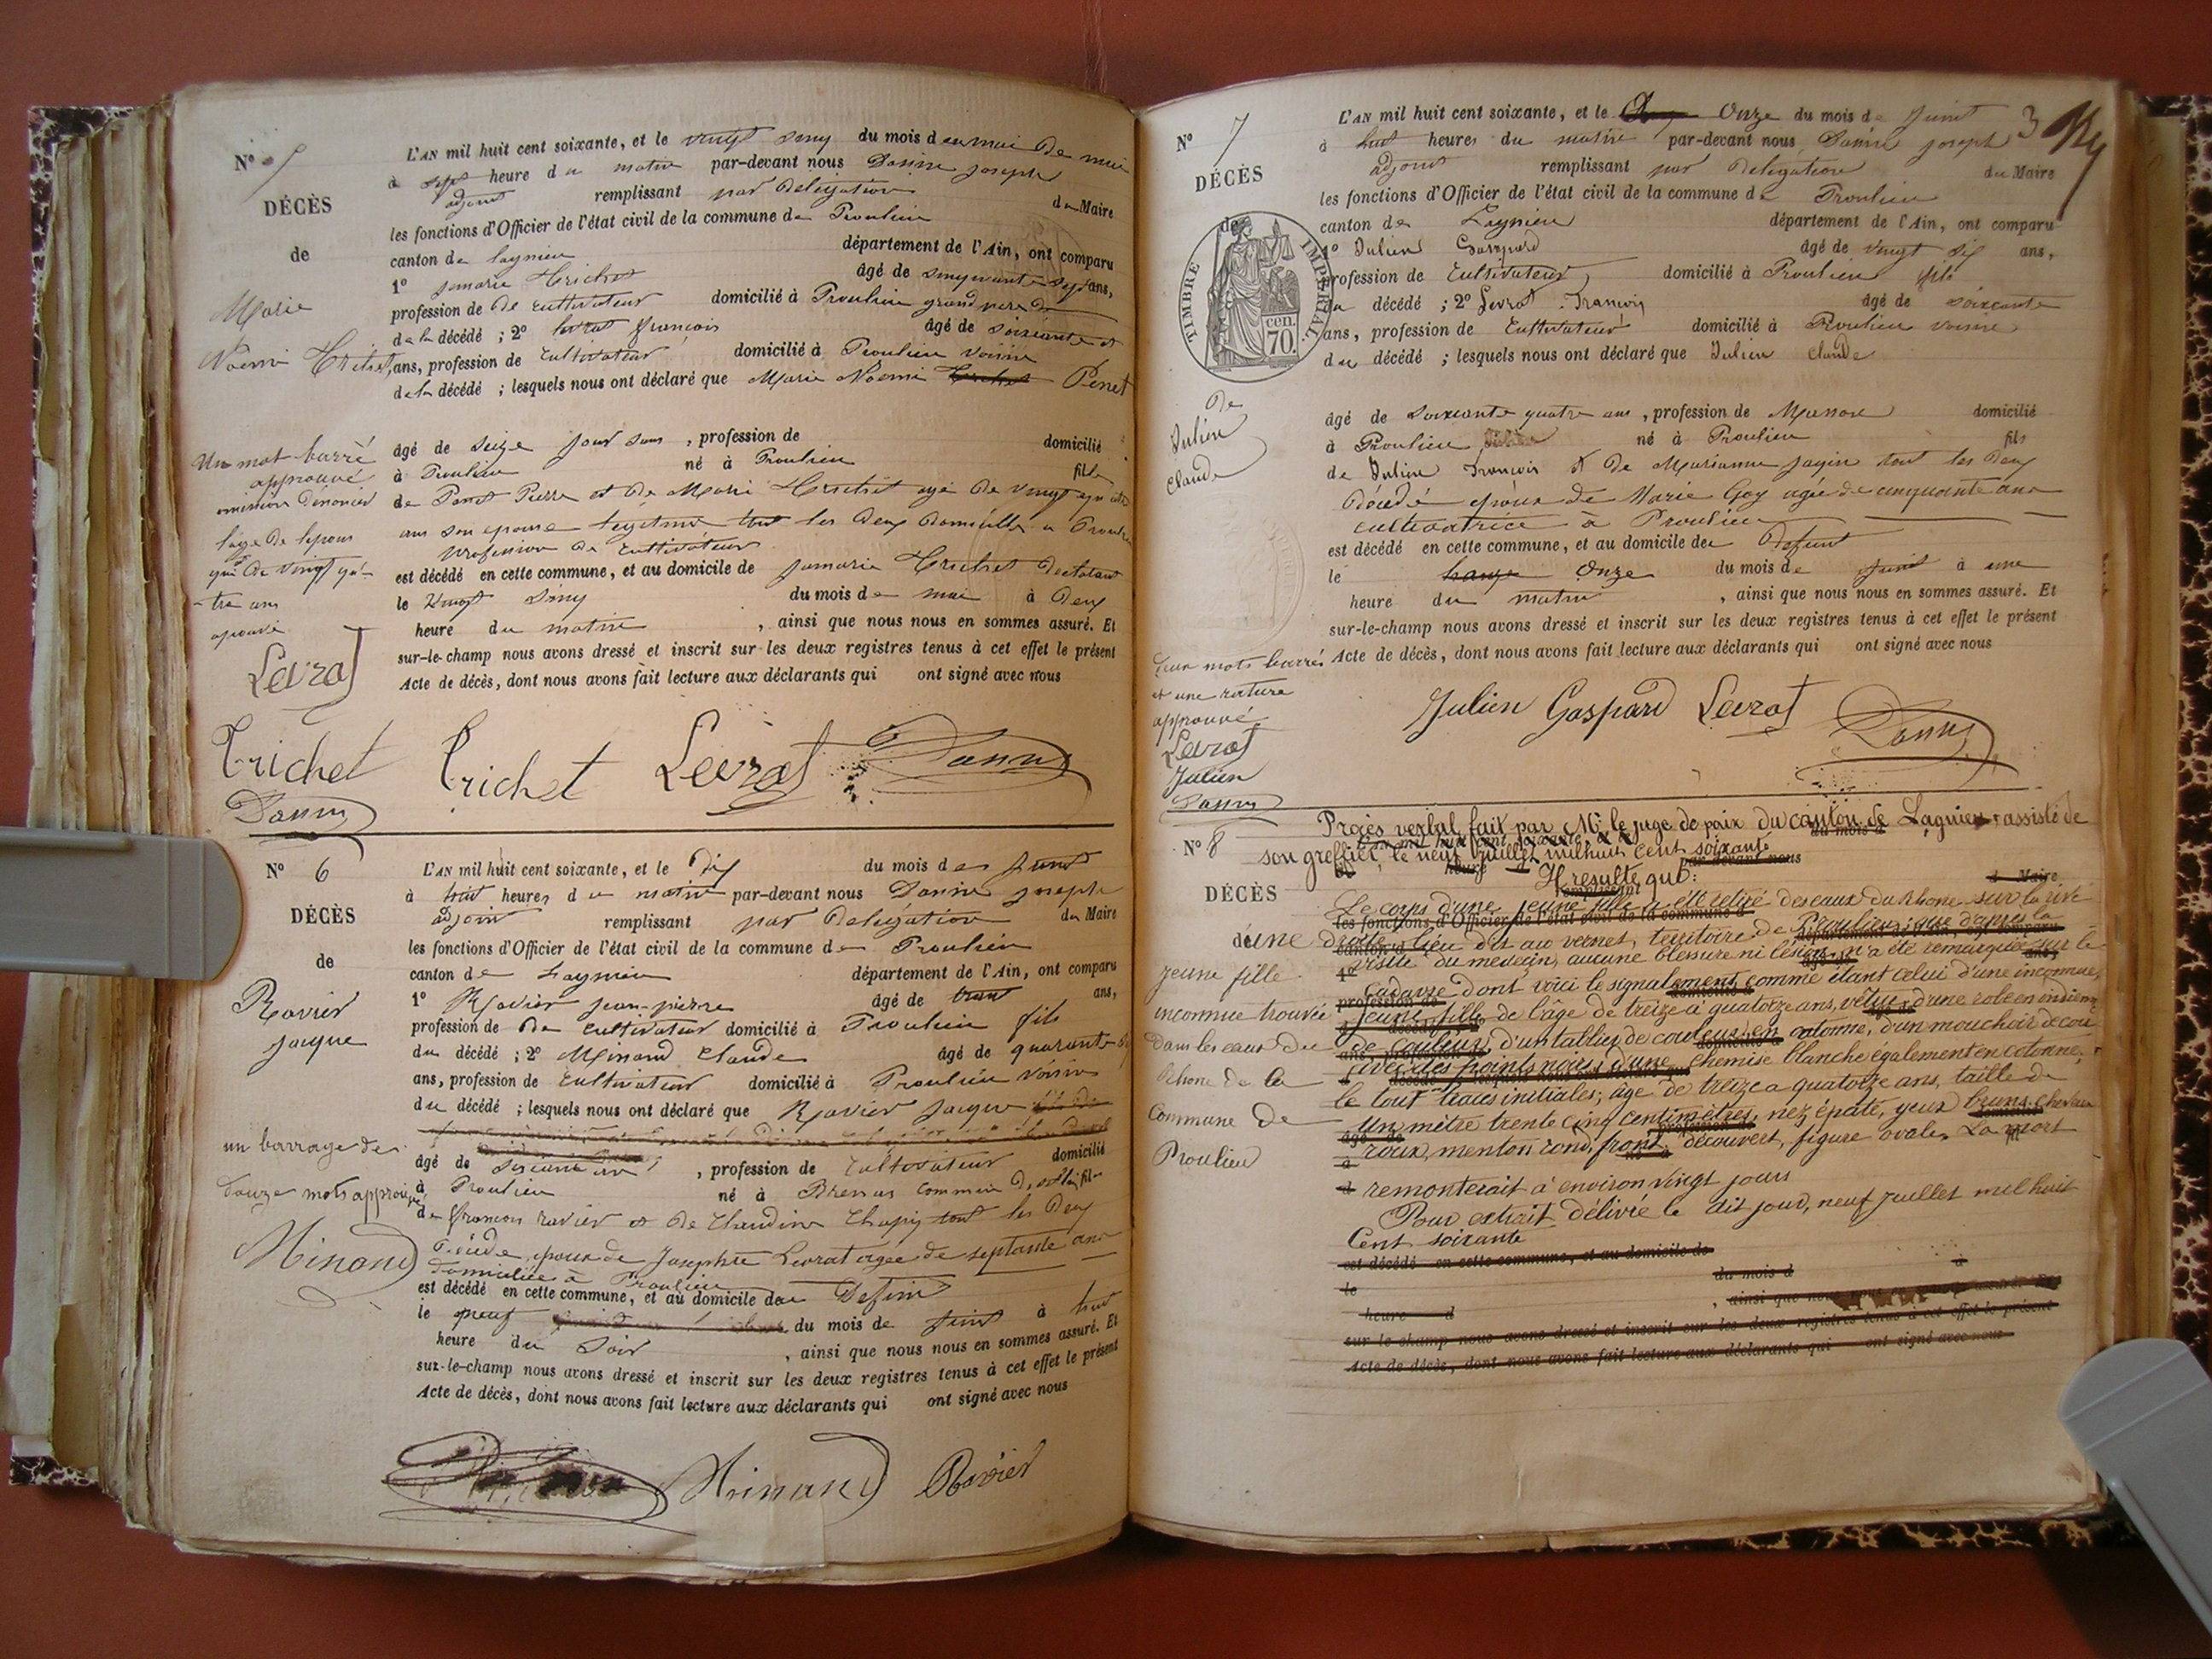 N° 5
DÉCÈS
de
Marie
Noémi Trichet
L'AN mil huit cent soixante, et le vingt du mois de mai
à sept heure du matin par-devant nous Danne joseph
adjoint remplissant par délégation du Maire
les fonctions d'Officier de l'état civil de la commune de Proulieu
canton de lagnieu département de l'Ain, ont comparu
1° jemarie Trichet âgé de cinquante sept ans,
profession de de cultivateur domicilié à Proulieu grand père de
de la décédé ; 2° levrat françois âgé de soixante et
ans, profession de cultivateur domicilié à Proulieu voisin
de la décédé ; lesquels nous ont déclaré que Marie Noemi Trichet Penet
âgé de seize jour sans , profession de domicilié
à Proulieu né à Proulieu fille
de Penet Pierre et de Marie Trichet agé de vingt quatre
ans son epouse légitime tout les deux domicillé a Proulieu
profession de cultivateur
est décédé en cette commune, et au domicile de jemarie Trichet declarant
le vingt du mois de mai à deux
heure du matin , ainsi que nous nous en sommes assuré. Et
sur-le-champ nous avons dressé et inscrit sur les deux registres tenus à cet effet le présent
Acte de décès, dont nous avons fait lecture aux déclarants qui ont signé avec nous
Un mot barré
approuvé
omission dénoncer
lage de lepous
qui de vingt qua-
-tre ans
aprouvé
Levrat
Trichet
Danne
Trichet Levrat Danne
N° 6
DÉCÈS
de
Ravier
jacque
L'AN mil huit cent soixante, et le dix du mois de juint
à huit heures du matin par-devant nous Danne joseph
adjoint remplissant par delegation du Maire
les fonctions d'Officier de l'état civil de la commune de Proulieu
canton de Lagnieu département de l'Ain, ont comparu
1° Ravier jean-pierre âgé de trent ans,
profession de de cultivateur domicilié à Proulieu fils
du décédé ; 2° Minand Claude âgé de quarante
ans, profession de cultivateur domicilié à Proulieu voisin
du décédé ; lesquels nous ont déclaré que Ravier jacque
âgé de soixante , profession de cultivateur domicilié
à Proulieu né à Brenas commune fils
de françois ravier et de Claudine Chapiz tout les deux
décédé epoux de Josephte Levrat agée de septante ans
domiciliée à Proulieu
est décédé en cette commune, et au domicile du Defunt
le neuf du mois de juint à huit
heure du soir , ainsi que nous nous en sommes assuré. Et
sur-le-champ nous avons dressé et inscrit sur les deux registres tenus à cet effet le présent
Acte de décès, dont nous avons fait lecture aux déclarants qui ont signé avec nous
un barrage de
douze mots approuvé
Minand
Minand Ravier
3
N° 7
DÉCÈS
de
TIMBRE IMPÉRIAL
70 cen.
De
Julien
Claude
L'AN mil huit cent soixante, et le onze du mois de juint
à huit heures du matin par-devant nous Danne joseph
adjoint remplissant par delegation du Maire
les fonctions d'Officier de l'état civil de la commune de Proulieu
canton de Lagnieu département de l'Ain, ont comparu
1° Julien Gaspard âgé de vingt six ans,
profession de cultivateur domicilié à Proulieu fils
du décédé ; 2° Levrat françois âgé de soixante
ans, profession de cultivateur domicilié à Proulieu voisin
du décédé ; lesquels nous ont déclaré que Julien Claude
âgé de soixante quatre ans , profession de Masson domicilié
à Proulieu né à Proulieu fils
de Julien françois et de Marianne jayin tout les deux
décédé epoux de Marie Goy agée de cinquante ans
cultivatrice à Proulieu
est décédé en cette commune, et au domicile du defunt
le onze du mois de juint à une
heure du matin , ainsi que nous nous en sommes assuré. Et
sur-le-champ nous avons dressé et inscrit sur les deux registres tenus à cet effet le présent
Acte de décès, dont nous avons fait lecture aux déclarants qui ont signé avec nous
deux mots barrés
et une rature
approuvé
Levrat
Julien
Danne
Julien Gaspard Levrat Danne
N° 8
DÉCÈS
d'une
jeune fille
inconnue trouvée
dans les eaux du
Rhone de la
Commune de
Proulieu
Procès verbal fait par Mr le juge de paix du canton de Lagnieu, assisté de
son greffier, le neuf juillet mil huit cent soixante
Il resulte que:
Le corps d'une jeune fille a été retiré des eaux du Rhone sur la rive
droite, lieu dit aux vernes, territoire de Proulieu; que d'après la
visite du medecin, aucune blessure ni lésion n'a été remarquée sur le
cadavre dont voici le signalement comme étant celui d'une inconnue,
jeune fille de l'âge de treize a quatorze ans, vêtue d'une robe en indienne
de couleur, d'un tablier de couleur en cotonne, d'un mouchoir de cou
à des points noirs, d'une chemise blanche également en cotonne;
le tout traces initiales; âge de treize a quatorze ans, taille de
un mètre trente cinq centimetres, nez épaté, yeux bruns, cheveux
roux, menton rond, front découvert, figure ovale, La mort
remonterait à environ vingt jours
Pour extrait délivré le dit jour, neuf juillet mil huit
Cent soixante
est décédé en cette commune, et au domicile de
le du mois d à
heure d , ainsi que nous
sur-le-champ nous avons dressé et inscrit sur les deux registres tenus à cet effet le présent
Acte de décès, dont nous avons fait lecture aux déclarants qui ont signé avec nous